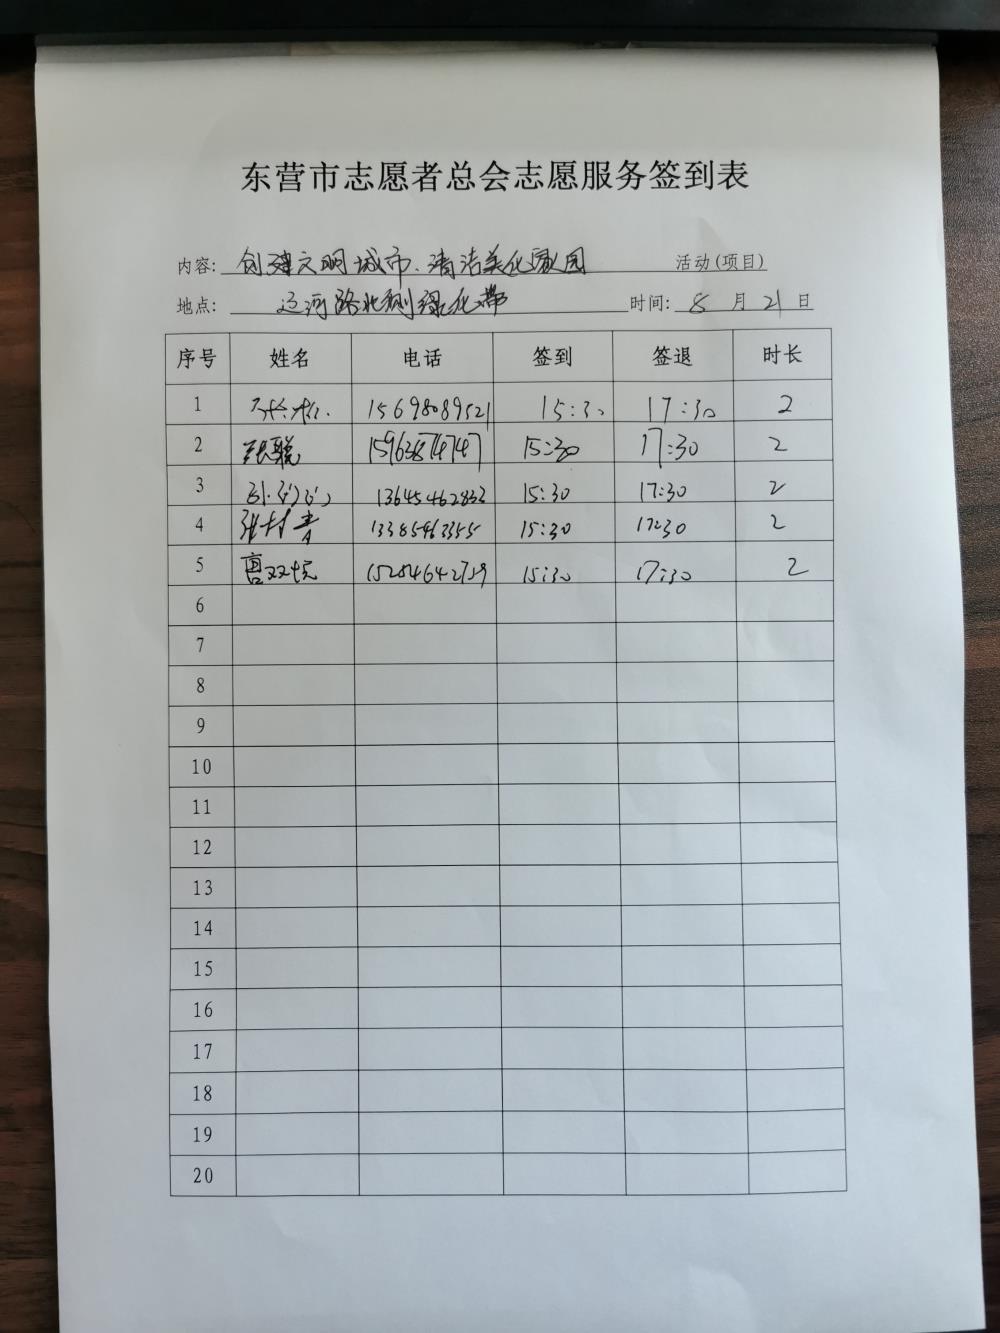 东营市志愿者总会志愿服务签到表
内容: 创建文明城市、清洁美化家园 活动(项目)
地点: 运河路北侧绿化带 时间: 8 月 21 日
序号 姓名 电话 签到 签退 时长
1 15698089521 15:30 17:30 2
2 张聪 15963874747 15:30 17:30 2
3 13645462833 15:30 17:30 2
4 张村青 13385463355 15:30 17:30 2
5 双悦 15:30 17:30 2
6
7
8
9
10
11
12
13
14
15
16
17
18
19
20